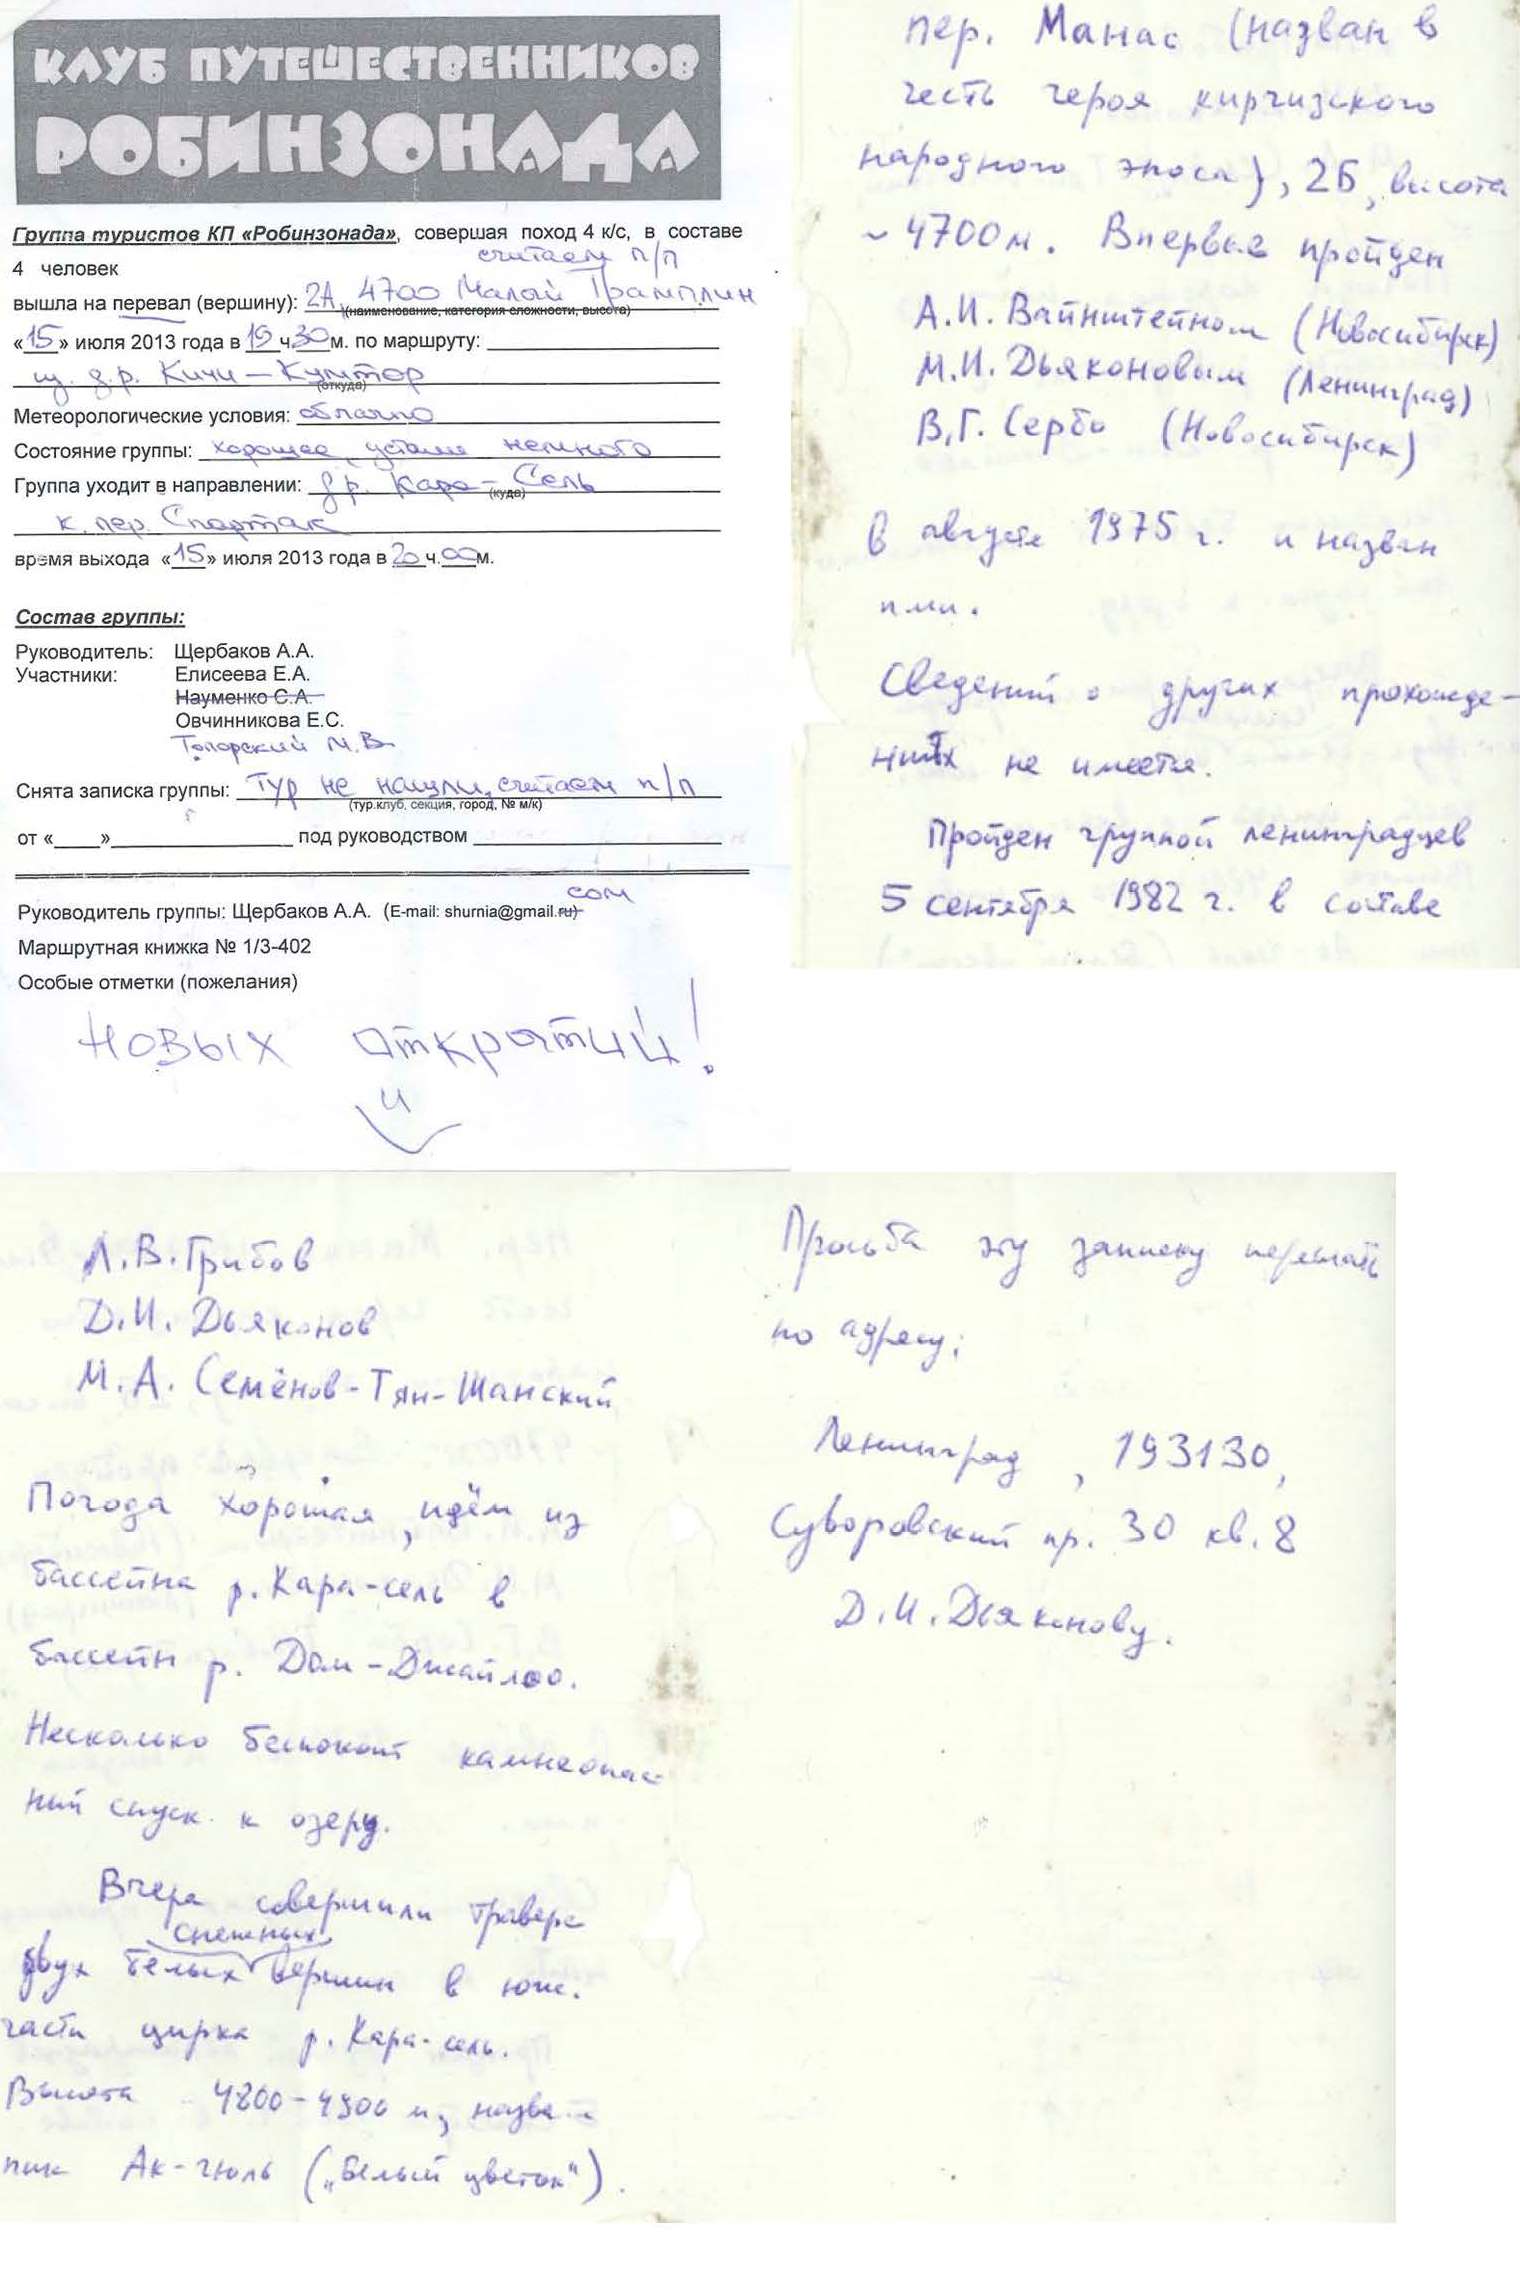 КЛУБ ПУТЕШЕСТВЕННИКОВ
РОБИНЗОНАДА
Группа туристов КП «Робинзонада», совершая поход 4 к/с, в составе
4 человек
считаем п/п
вышла на перевал (вершину): 2А, 4700 Малый Трамплин
(наименование, категория сложности, высота)
«15» июля 2013 года в 19 ч 30 м. по маршруту:
из д.р. Кичи-Кумтор
(откуда)
Метеорологические условия: облачно
Состояние группы: хорошее, устали немного
Группа уходит в направлении: д.р. Кара-Сель
(куда)
к пер. Спартак
время выхода «15» июля 2013 года в 20 ч. 00 м.
Состав группы:
Руководитель: Щербаков А.А.
Участники: Елисеева Е.А.
Науменко С.А.
Овчинникова Е.С.
Топорский М.В.
Снята записка группы: тур не нашли, считаем п/п
(тур.клуб, секция, город, № м/к)
от «____»________________ под руководством
com
Руководитель группы: Щербаков А.А. (E-mail: shurnia@gmail.ru)
Маршрутная книжка № 1/3-402
Особые отметки (пожелания)
Новых открытий!
пер. Манас (назван в
честь героя киргизского
народного эпоса), 2Б, высота
~ 4700м. Впервые пройден
А.И. Вайнштейном (Новосибирск)
М.И. Дьяконовым (Ленинград)
В.Г. Сербо (Новосибирск)
В августе 1975 г. и назван
ими.
Сведений о других прохожде-
ниях не имеется.
Пройден группой ленинградцев
5 сентября 1982 г. в составе
Л.В. Грибов
Д.И. Дьяконов
М.А. Семёнов-Тян-Шанский
Погода хорошая, идём из
бассейна р. Кара-сель в
бассейн р. Дом-Джайлоо.
Несколько беспокоит камнеопас-
ный спуск к озеру.
Вчера совершили траверс
снежных
двух белых вершин в юж.
части цирка р. Кара-сель.
Высота 4800-4900 м,
пик Ак-гюль („Белый цветок").
Просьба эту записку переслать
по адресу:
Ленинград, 193130,
Суворовский пр. 30 кв. 8
Д.И. Дьяконову.